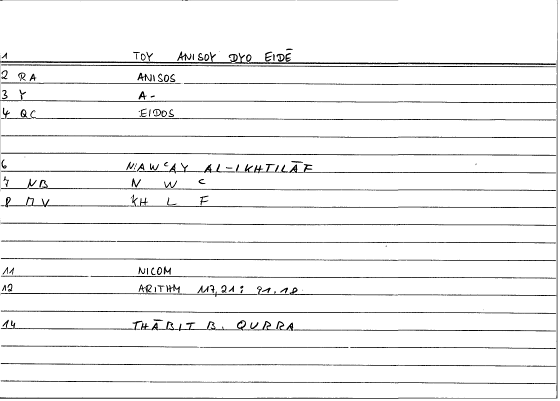 1 TOY ANISOY DYO EIDĒ
2 RA ANISOS
3 Y A-
4 QC EIDOS
6 NAWʿAY AL-IKHTILĀF
7 NB N W C
8 MV KH L F
11 NICOM
12 ARITHM 117,21: 91.18
14 THĀBIT B. QURRA